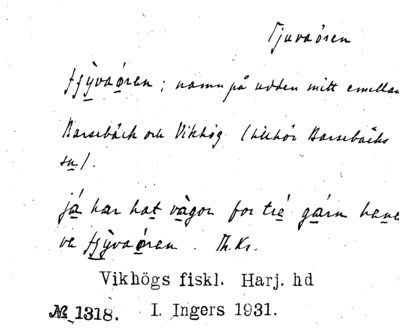 Tjuvaören
tjy̲vaö̲ren ; namn på udden mitt emellan
Barsebäck och Vikhög (tillhör Barsebäcks
sn).
já har hat vàgor for tré gárn
va tjy̲vaö̲ren. Th. Kr.
Vikhögs fiskl. Harj. hd
№ 1318. I. Ingers 1931.